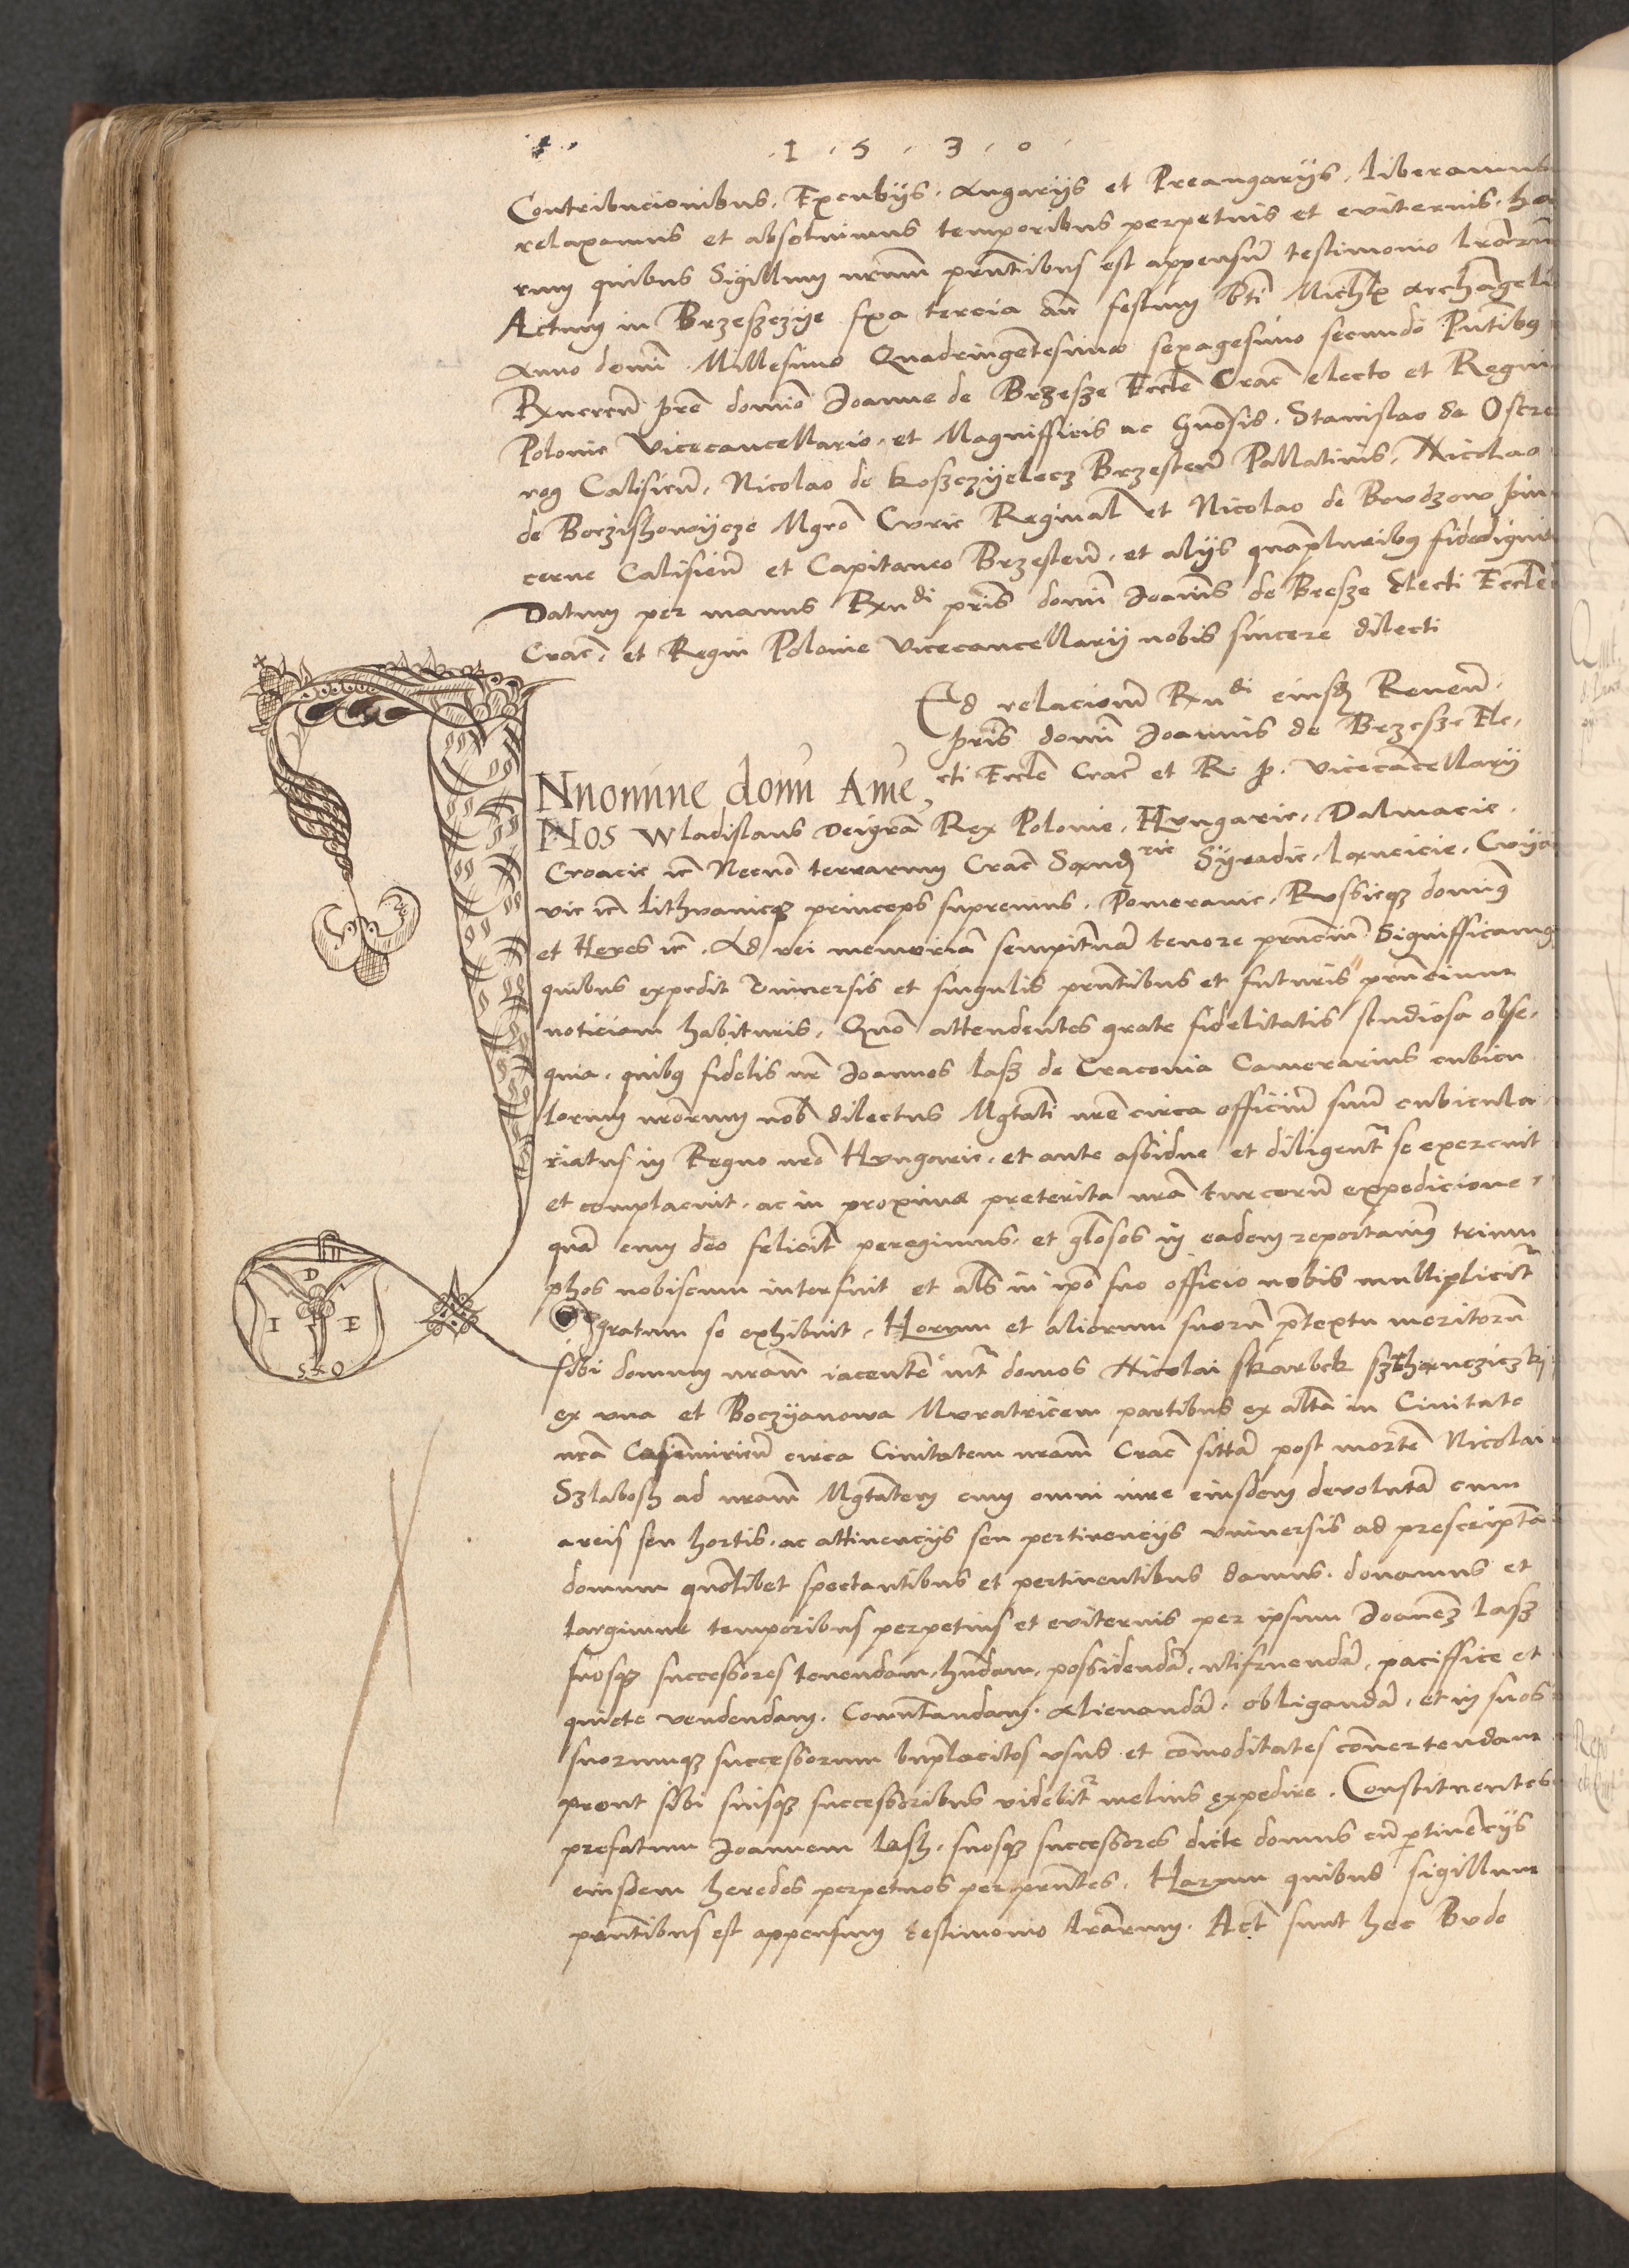 .1.5.3.0.
Contribucionibus. Excubijs. Angarijs et Preangarijs. liberamus
relaxamus et absoluimus temporibus perpetuis et eviternis. ha
rum quibus Sigillum nrum pntibus est appensu testimonio lrarum
Actum in Brzesczye fxa tercia an festum bti Michl archangeli
Anno domi Millesimo Quadringetesimo sexagesimo secundo Pntibus
Rxueren pre domio Joanne de Brzesze Eccle Crac electo et Regni
Polonie Vicecancellario. et Magnifficis ac Gnosis. Stanislao de Ostro
rog Calisien, Nicolao de Kosczyelecz Brzesten Pallatinis, Nicolao
de Boczishowijcze Mgro Curie Reginal et Nicolao de Bovdzow pin
cerne Calisien et Capitaneo Brzesten. et alijs quapluribus fidedignis
Datum per manus Rxndi pris domi Joanis de Brzesze Electi Eccle
Crac. et Regni Polonie Vicecancellarij nobis sincere dilecti
Ad relacionem Rxndi eiusdem Reueren.
pris domi Joannis de Brzesze Ele,
cti Eccle Crac et R. P. Vicecancellarij
INnomine domi Ame,
NOS Wladislaus Deigra Rex Polonie. Hungarie. Dalmacie.
Croacie ic Necno terrarum Crac Sandrie Syradie. Lancicie. Cuya
vie ic Lithvanieque princeps supremus. Pomeranie. Russieque domius
et Heres ic. Ad rei memoria sempiterna tenore pncium Signifficamus
quibus expedit Vniuersis et singulis pntibus et futuris pncium
noticiam habituris. Quo attendentes grate fidelitatis studiosa obse,
quia. quibus fidelis nr Joannes Lasz de Cracouia Camerarius cubicu
lorum nrorum nob dilectus Mgtati nre circa officiu suu cubicula
riatus in Regno nro Hungarie. et ante assidue et diligent se exercuit
et complacuit. ac in proxima preterita nra turcoru expedicione,
qua cum deo felicit peregimus. et gloses in eadem reportauimus trium
phos nobiscum interfuit et als in ipo suo officio nobis multiplicit
gratum se exhibuit. Horum et aliorum suoru ptextu meritoru
sibi domum nram iacente int domos Nicolai Skarbek szthanczicz
ex vna et Boczyanowa Muratricem partibus ex alta in Ciuitate
nra Casimirien circa Ciuitatem nram Crac sitta post morte Nicolai
Szlabosz ad nram Mgtatem cum omni iure eiusdem deuoluta cum
areis seu hortis. ac attinencijs seu pertinencijs vniuersis ad prescripta
domum quolibet spectantibus et pertinentibus damus. donamus et
largimur temporibus perpetuis et eviternis per ipsum Joanem Lasz
suosque successores tenendam. hndam. possidenda. utifruenda. paciffice et
quiete vendendam. Comutandam. alienanda. obliganda. et in suos
suorumque successorum bnplacitos vsus et comoditates conuertendam
prout sibi suisque successoribus videbit melius expedire. Constituentes
prefatum Joannem Lasz. suosque successores dicte domus cu ptinecijs
eiusdem heredes perpetuos per pntes. Harum quibus sigillum
pntibus est appensum testimonio lrarum. Act sunt hec Bude
I D E
S X O